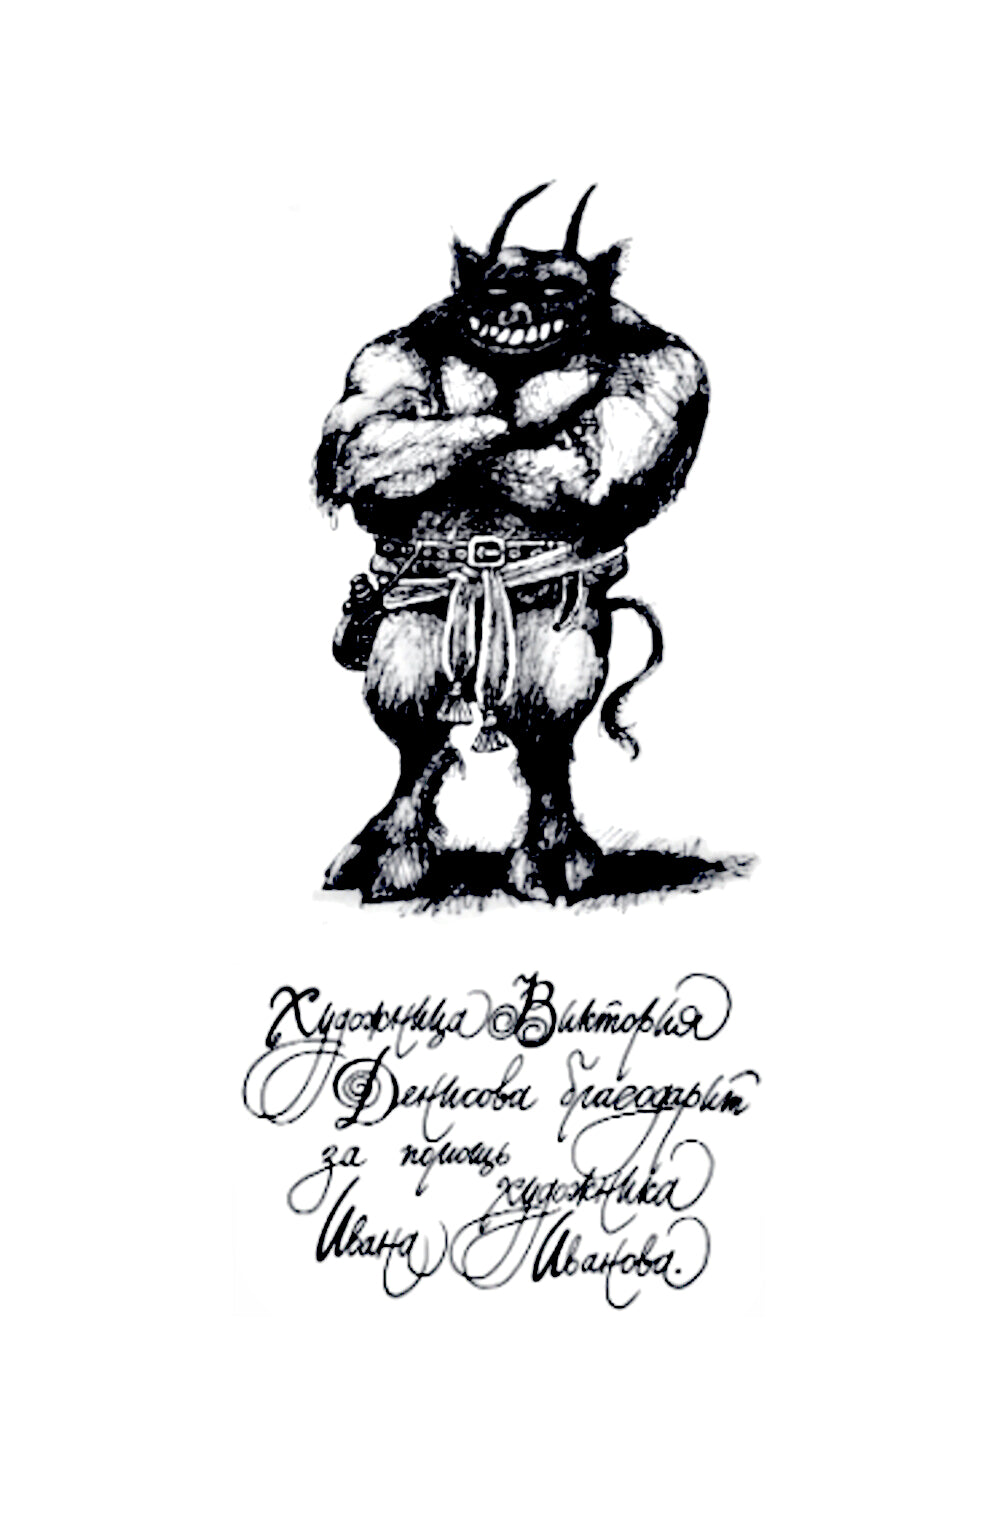 Художница Виктория
Денисова благодарит
за помощь
художника
Ивана Иванова.